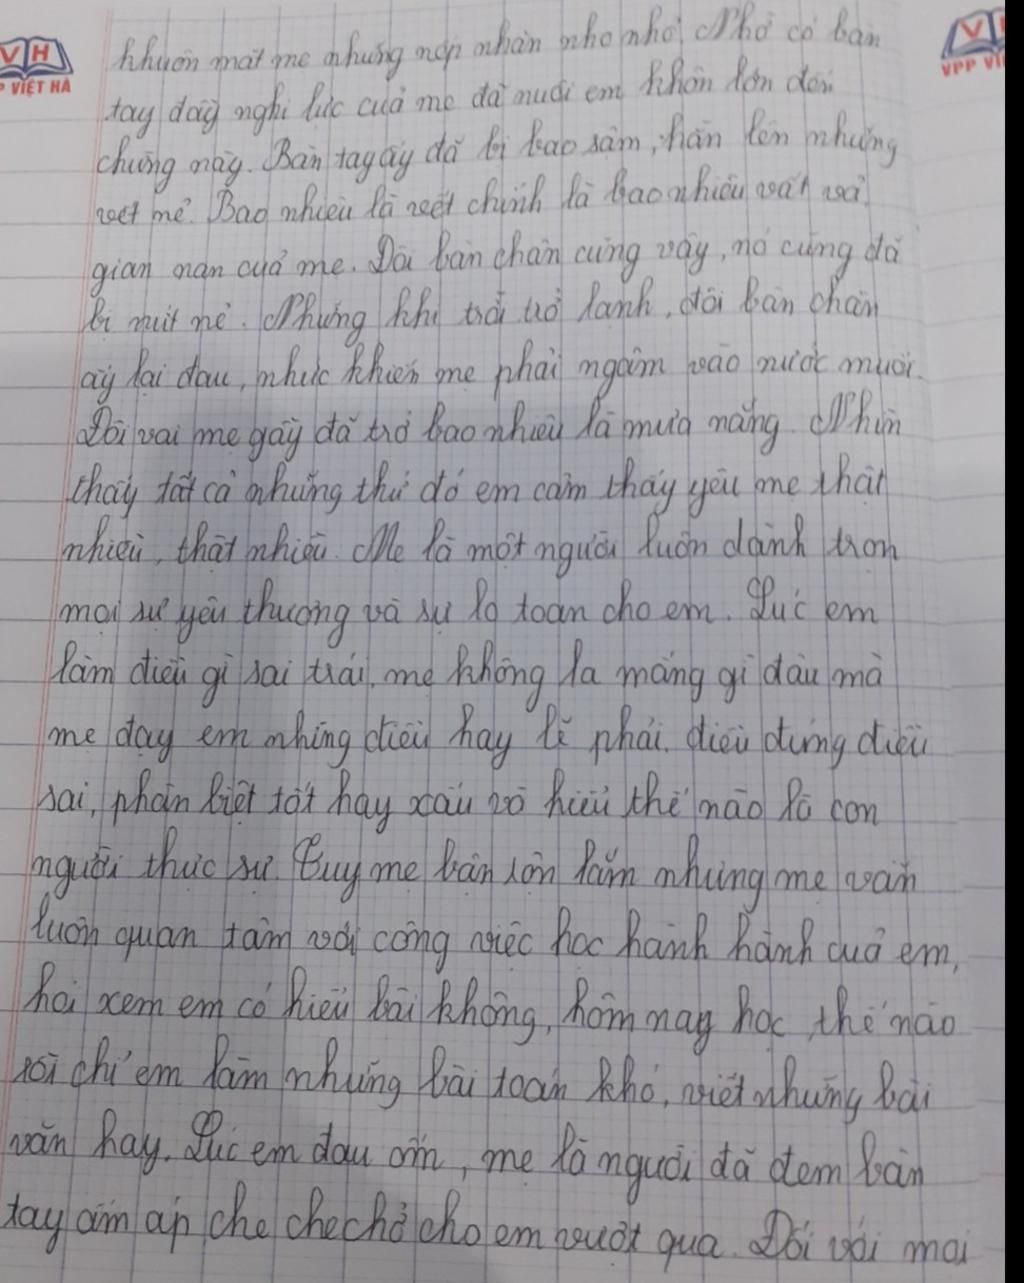 VH
VIỆT HÀ
V
VPP VI
khuôn mặt mẹ những nếp nhăn nho nhỏ. Nhờ có bàn
tay đầy nghị lực của mẹ đã nuôi em khôn lớn đến
chừng này. Bàn tay ấy đã bị bao sàm, hằn lên những
vết mẻ. Bao nhiêu là vết chính là bao nhiêu vất vả,
gian nan của mẹ. Đôi bàn chân cũng vậy, nó cũng đã
bị nứt nẻ. Nhưng khi trời trở lạnh, đôi bàn chân
ấy lại đau, nhức khiến mẹ phải ngâm vào nước muối.
Đôi vai mẹ gầy đã trở bao nhiêu là mưa nắng. Nhìn
thấy tất cả những thứ đó em cảm thấy yêu mẹ thật
nhiều, thật nhiều. Mẹ là một người luôn dành trọn
mọi sự yêu thương và sự lo toan cho em. Lúc em
làm điều gì sai trái, mẹ không la mắng gì đâu mà
mẹ dạy em nhing điều hay lẽ phải, điều đúng điều
sai, phân biệt tốt hay xấu vò hiểu thế nào là con
người thực sự. Tuy mẹ bận rộn lắm nhưng mẹ vẫn
luôn quan tâm với công việc học hành hành của em,
hỏi xem em có hiểu bài không, hôm nay học thế nào
rồi chỉ em làm những bài toán khó, viết những bài
văn hay. Lúc em đau ốm, mẹ là người đã đem bàn
tay ấm áp che che chở cho em vượt qua. Đối với mọi